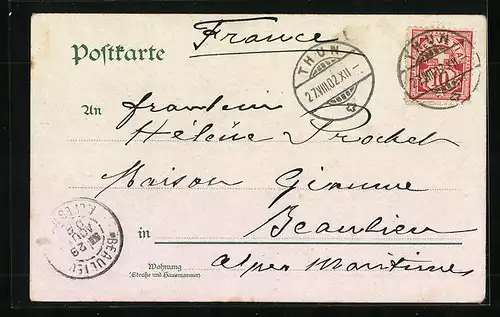 Postkarte
France
THUN
27.VIII.02.XII
THUN
10
An
fraulein
Hélène Prochet
Maison Gianne
in
Beaulieu
alpes maritimes
Wohnung
(Straße und Hausnummer)
BEAULIEU
28